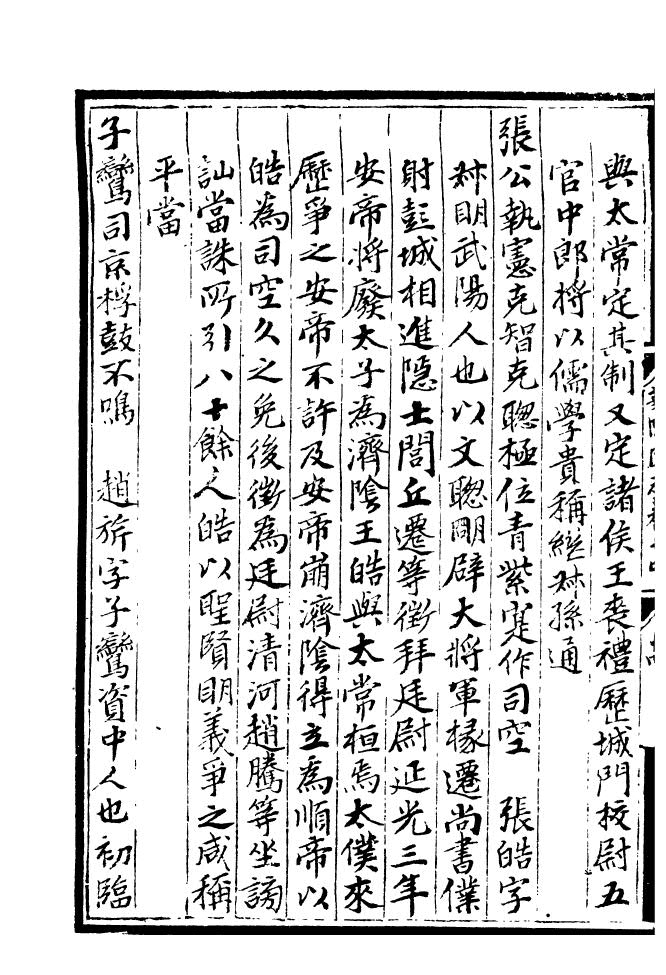 與太常定其制又定諸侯王喪禮歷城門校尉五
官中郎將以儒學貴稱繼叔孫通
張公執憲克智克聰極位青紫寔作司空　張皓字
叔明武陽人也以文聰明辟大將軍椽遷尚書僕
射彭城相進隱士閭丘遷等徵拜廷尉延光三年
安帝將廢太子為濟陰王皓與太常桓焉太僕來
歷爭之安帝不許及安帝崩濟陰得立為順帝以
皓為司空久之免後徵為廷尉清河趙騰等坐謗
訕當誅所引八十餘人皓以聖賢明義爭之咸稱
平當
子鸞司京桴鼓不鳴　趙旂字子鸞資中人也初臨